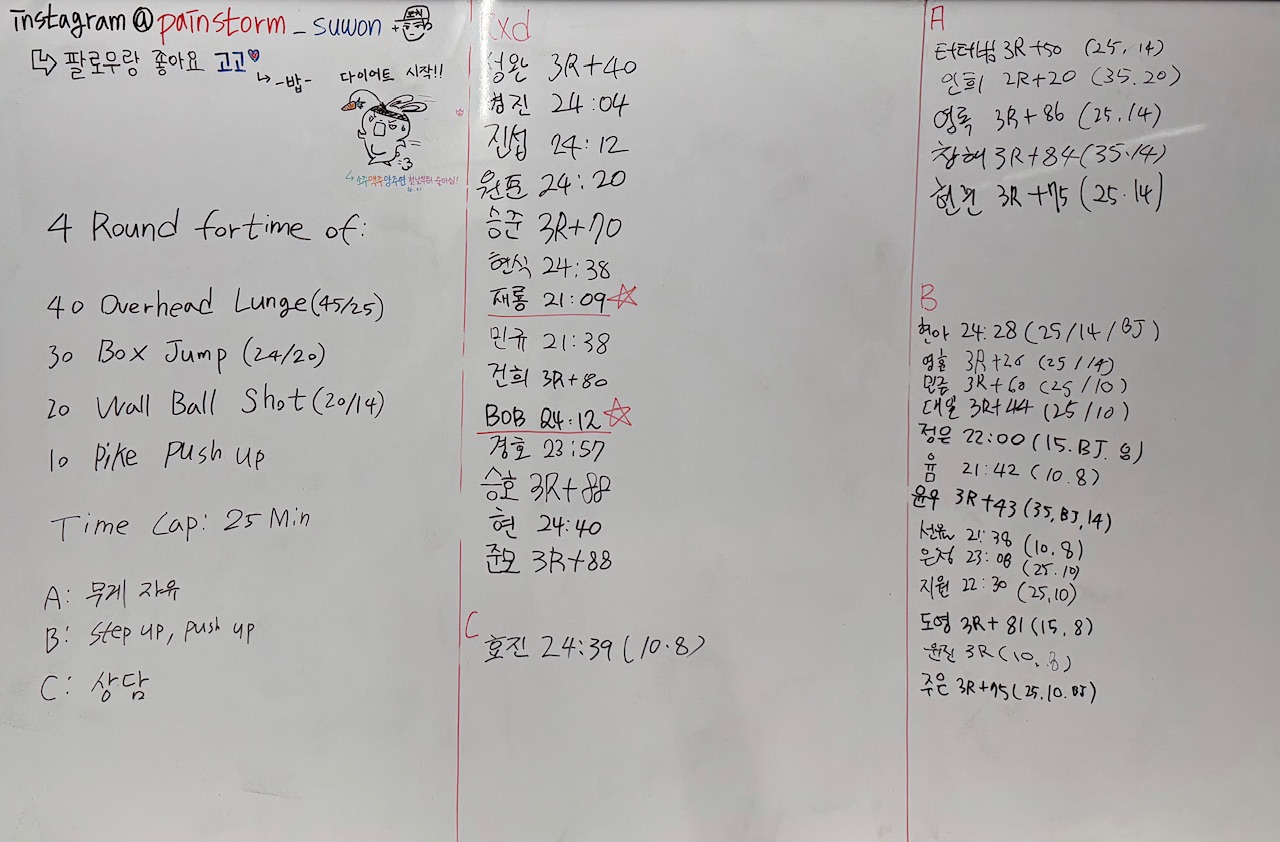 instagram @ painstorm _ suwon + EN
팔로우랑 좋아요 고고
-밥-
다이어트 시작!!
4 Round for time of:
40 Overhead Lunge (45/25)
30 Box Jump (24/20)
20 Wall Ball Shot (20/14)
10 Pike Push up
Time Cap: 25 Min
A: 무게 자유
B: Step up, push up
C: 상담
Rxd
성완 3R+40
경진 24:04
진섭 24:12
원튼 24:20
승준 3R+70
현식 24:38
재룡 21:09
민규 21:38
건희 3R+80
BOB 24:12
경호 23:57
승호 3R+88
현 24:40
준모 3R+88
C
효진 24:39 (10.8)
A
터터범 3R+50 (25.14)
인희 2R+20 (35.20)
영록 3R+86 (25.14)
창해 3R+84 (35.14)
3R+75 (25.14)
B
현아 24:28 (25/14/BJ)
영훈 3R+26 (25/14)
민금 3R+60 (25/10)
대일 3R+44 (25/10)
정은 22:00 (15.BJ.
윰 21:42 (10.8)
윤우 3R+43 (35,BJ,14)
선율 21:38 (10.8)
은정 23:08 (25.10)
지원 22:30 (25,10)
도영 3R+81 (15.8)
윤진 3R (10.8)
주은 3R+75 (25.10.BJ)